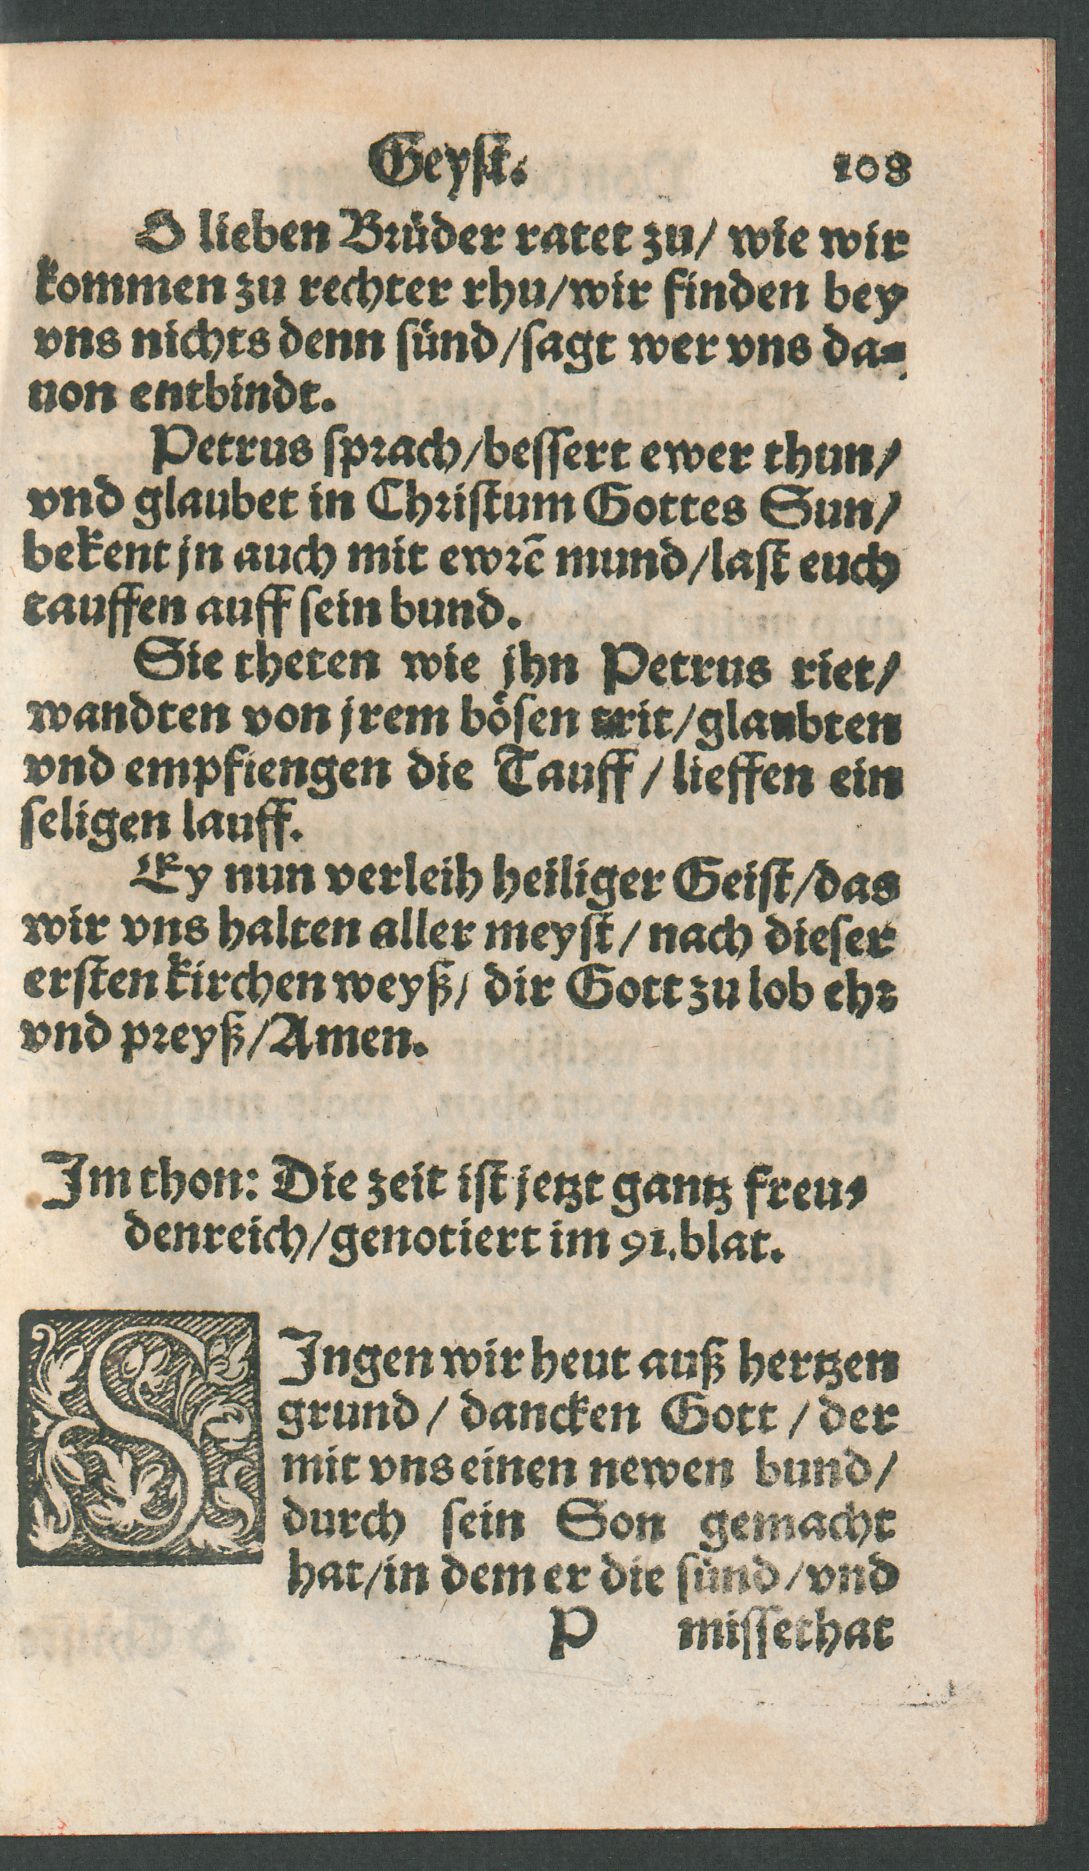 Geyst. 108
O lieben Brüder ratet zu/ wie wir
kommen zu rechter rhu/wir finden bey
vns nichts denn sünd/sagt wer vns da-
uon entbindt.
Petrus sprach/bessert ewer thun/
vnd glaubet in Christum Gottes Sun/
bekent jn auch mit ewrē mund/last euch
tauffen auff sein bund.
Sie theten wie jhn Petrus riet/
wandten von jrem bösen trit/glaubten
vnd empfiengen die Tauff/ lieffen ein
seligen lauff.
Ey nun verleih heiliger Geist/das
wir vns halten aller meyst/ nach dieser
ersten kirchen weyß/ dir Gott zu lob ehr
vnd preyß/Amen.
Im thon: Die zeit ist jetzt gantz freu-
denreich/genotiert im 91.blat.
SIngen wir heut auß hertzen
grund/ dancken Gott/ der
mit vns einen newen bund/
durch sein Son gemacht
hat/in dem er die sünd/vnd
P missethat